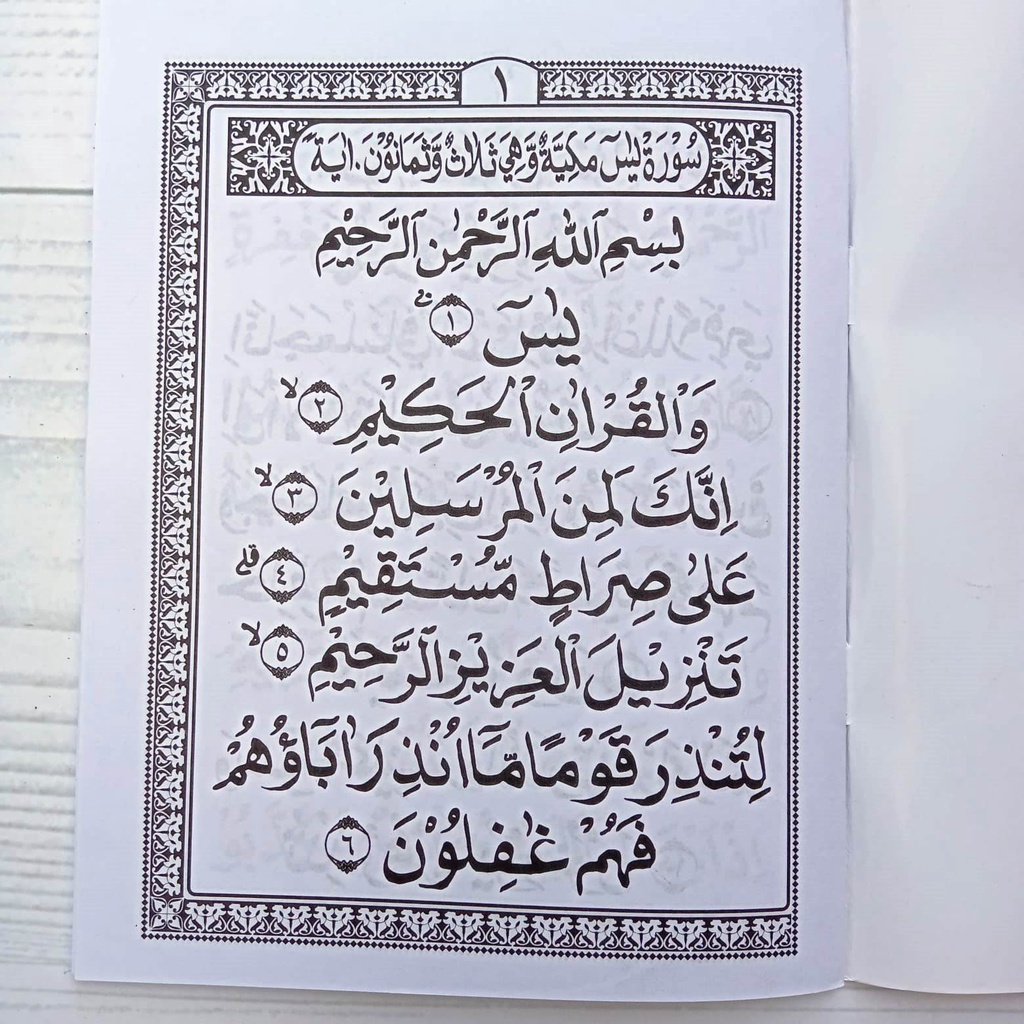 ١
سُوْرَةُ يٰسٓ مَكِيَّةٌ وَّهِيَ ثَلَاثٌ وَّثَمَانُوْنَ اٰيَةً
بِسْمِ اللهِ الرَّحْمٰنِ الرَّحِيْمِ
يٰسٓ ۚ ١
وَالْقُرْاٰنِ الْحَكِيْمِ ۙ ٢
اِنَّكَ لَمِنَ الْمُرْسَلِيْنَ ۙ ٣
عَلٰى صِرَاطٍ مُّسْتَقِيْمٍ ۗ ٤
تَنْزِيْلَ الْعَزِيْزِ الرَّحِيْمِ ۙ ٥
لِتُنْذِرَ قَوْمًا مَّآ اُنْذِرَ اٰبَاۤؤُهُمْ
فَهُمْ غٰفِلُوْنَ ٦